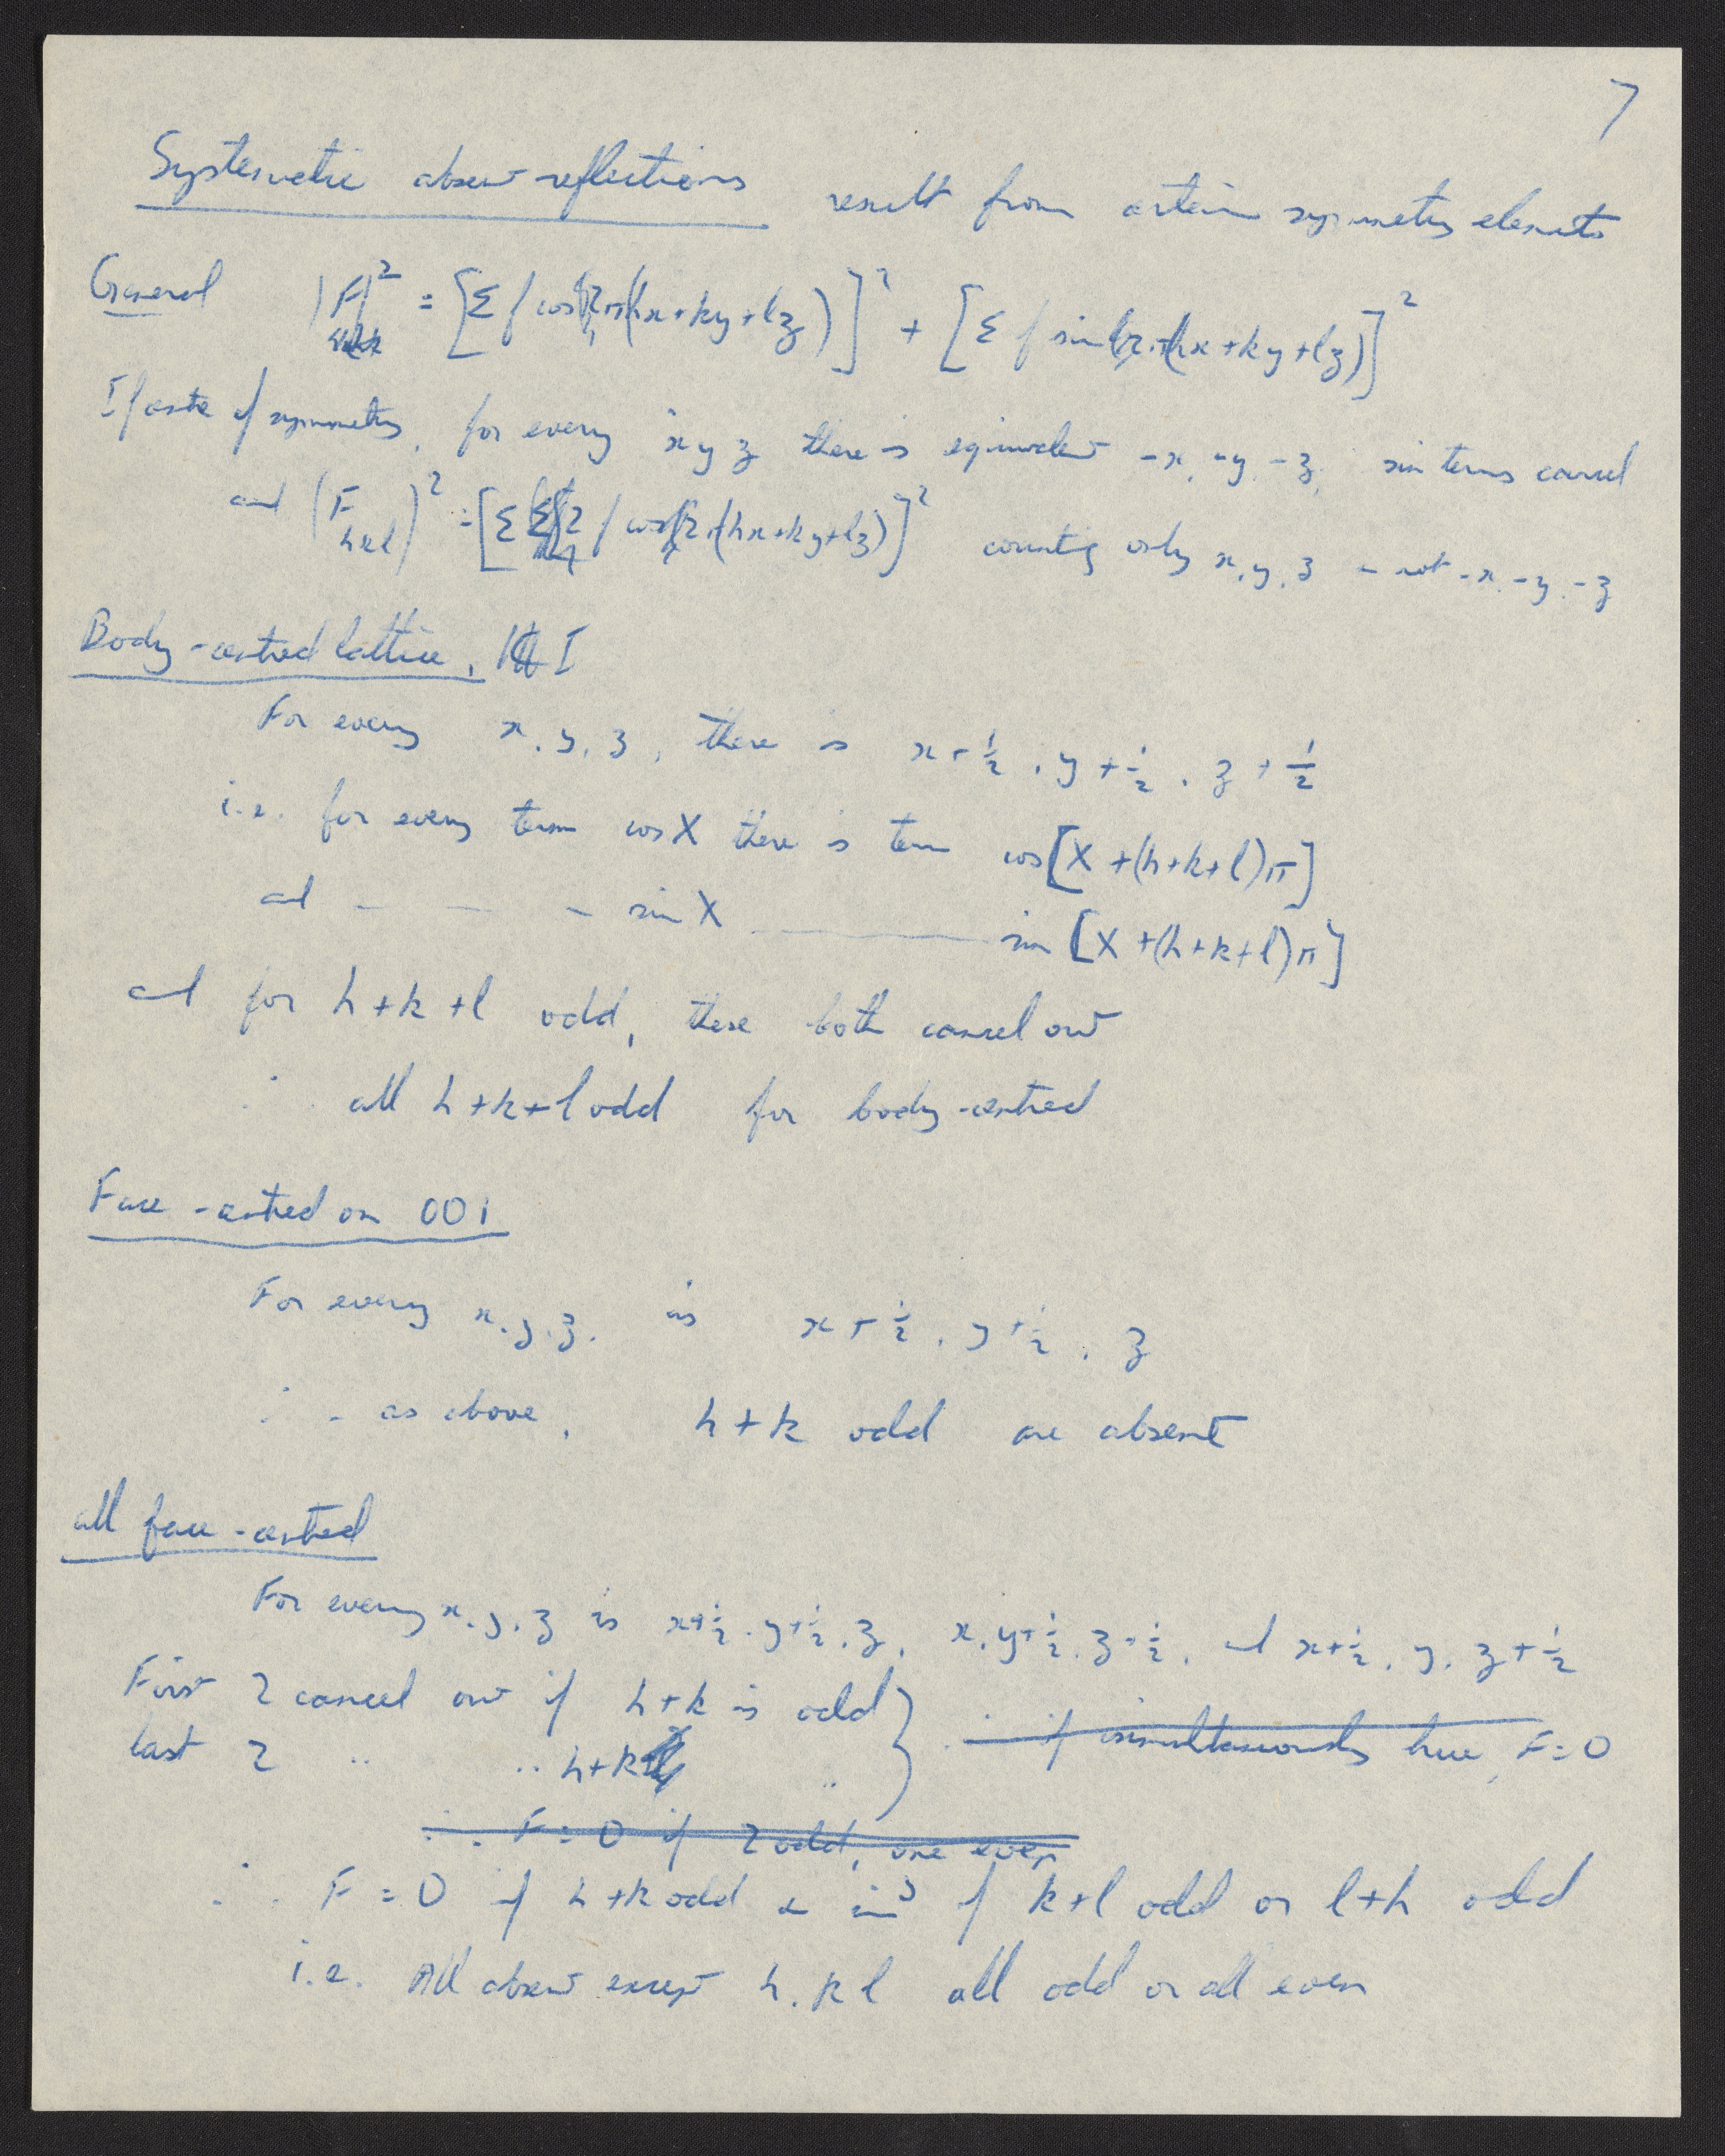 7
Systematic absent reflections result from certain symmetry elements
General |F|² = [Σ f cos 2π(hx+ky+lz)]² + [Σ f sin 2π(hx+ky+lz)]²
If centre of symmetry, for every x y z there is equivalent -x, -y, -z, sin terms cancel
and (F hkl)² = [Σ 2 f cos 2π(hx+ky+lz)]² counting only x, y, z - not -x, -y, -z
Body-centred lattice, I
For every x, y, z, there is x+½, y+½, z+½
i.e. for every term cos X there is term cos[X+(h+k+l)π]
and — — — sin X ———— sin[X+(h+k+l)π]
and for h+k+l odd, these both cancel out
∴ all h+k+l odd for body-centred
Face-centred on 001
For every x, y, z, is x+½, y+½, z
∴ as above, h+k odd are absent
all face-centred
For every x, y, z is x+½, y+½, z, x, y+½, z+½, and x+½, y, z+½
First 2 cancel out if h+k is odd } ∴ if simultaneously true, F=0
last 2 " " h+k "
∴ F=0 if 2 odd, one even
∴ F=0 if h+k odd & if k+l odd or l+h odd
i.e. All absent except h, k l all odd or all even